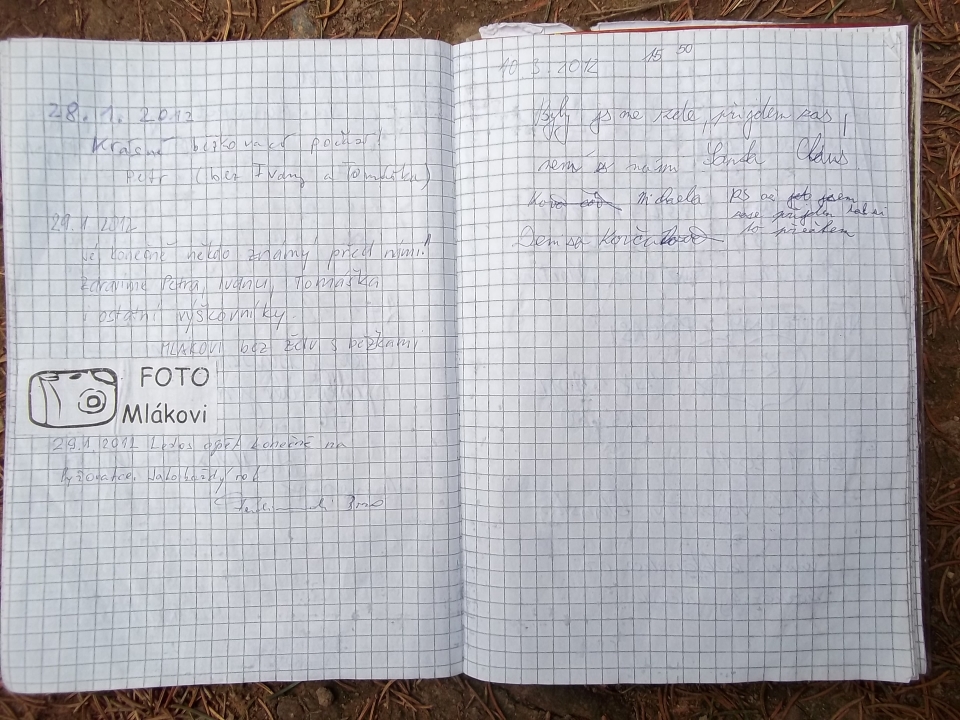 28.1.2012
Krásné běžkovací počasí!
Petr (bez Ivany a Tomáška)
29.1.2012
Jé konečně někdo známý před námi!
Zdravíme Petra, Ivanu, Tomáška
i ostatní výškovníky.
MLÁKOVI bez želv s běžkami
FOTO
Mlákovi
29.1.2012 Letos opět konečně na
jako každý rok
Brno
10 3. 2012 15 50
Byly jsme zde, přijdem zas,
není s námi Santa Claus
Michaela PS až jsem
zase přijdem tak si
to přečtem
Denisa